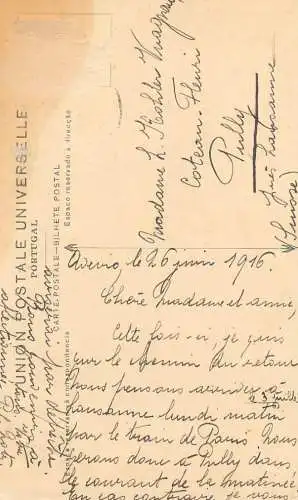 UNION POSTALE UNIVERSELLE
PORTUGAL
CARTE POSTALE – BILHETE POSTAL
Espaço reservado á direcção
Madame L. Kohler
Coteau-Fleuri
Pully
près Lausanne
(Suisse)
Aveiro, le 26 juin 1916.
Chère Madame et amie,
Cette fois-ci, je suis
sur le chemin du retour
Nous pensons arriver à
Lausanne lundi matin
3 juillet
par le train de Paris. Nous
serons donc à Pully dans
le courant de la matinée
En cas contraire, je vous